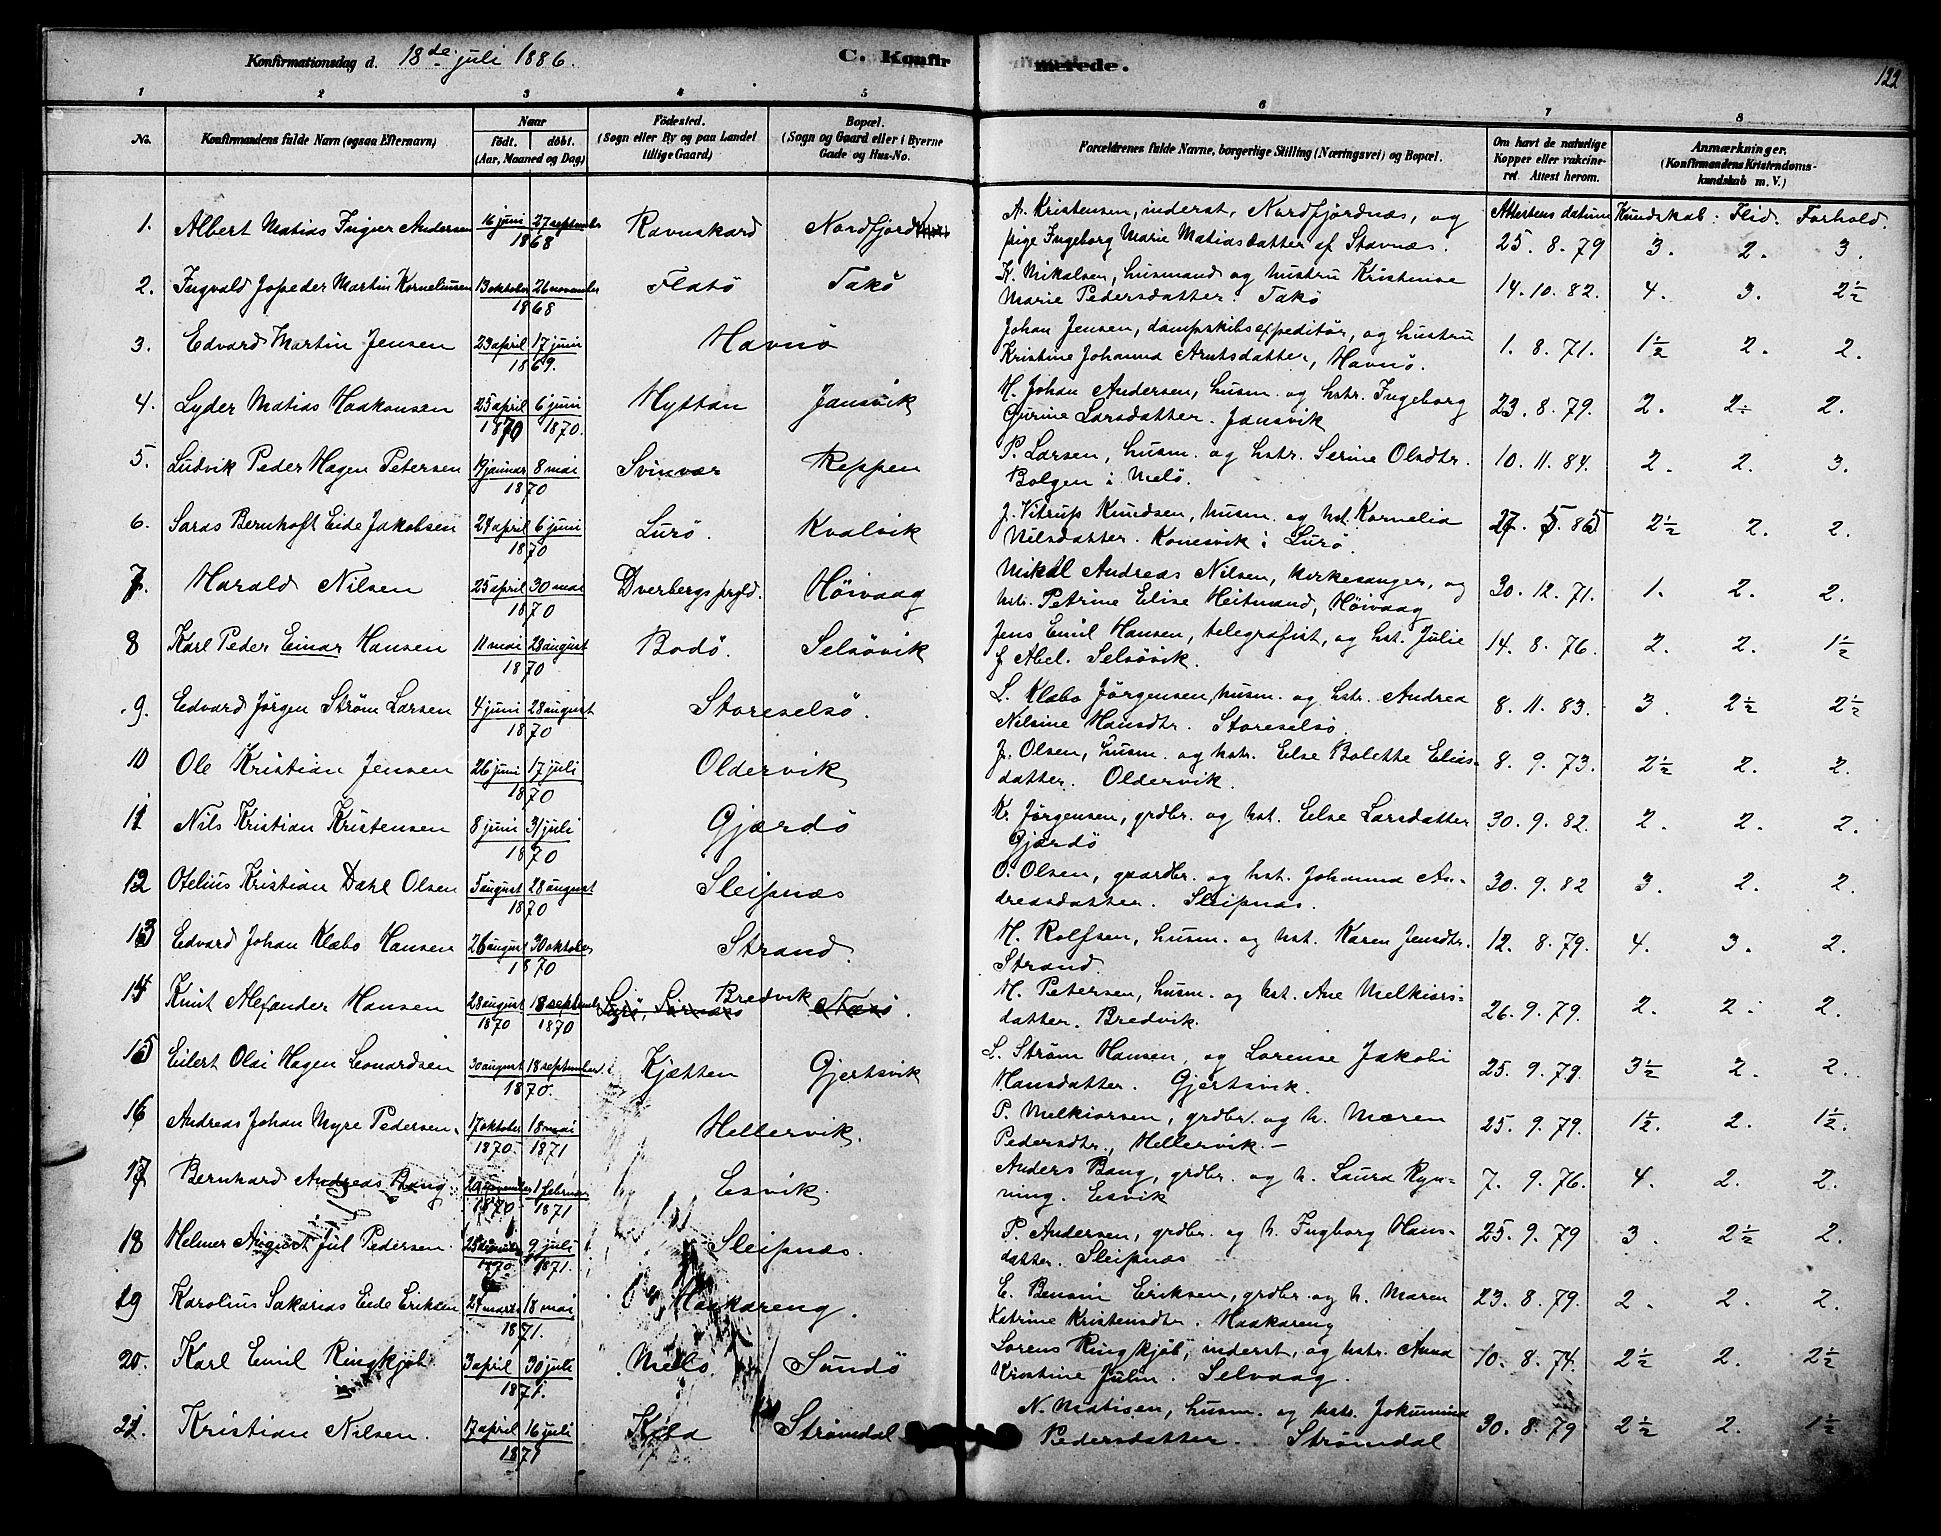 Konfirmationsdag d. 18de juli 1886. C. Konfirmerede. 122
1 2 3 4 5 6 7 8
No. Konfirmandens fulde Navn (ogsaa Efternavn) Naar født. døbt. (Aar, Maaned og Dag) Fødested. (Sogn eller By og paa Landet tillige Gaard) Bopæl. (Sogn og Gaard eller i Byerne Gade og Hus-No. Forældrenes fulde Navne, borgerlige Stilling (Næringsvei) og Bopæl. Om havt de naturlige Kopper eller vakcineret. Attest herom. Anmærkninger. (Konfirmandens Kristendomskundskab m. V.)
Attestens datum Kundskab: Flid. Forhold.
1. Albert Matias Ingier Andersen 16 juni 27 september 1868 Ravnskard Nordfjord A. Kristensen, inderst, Nordfjordnæs, og
pige Ingeborg Marie Matiasdatter af Stavnæs. 25. 8. 79 3. 2. 3.
2. Ingvald Jopeder Martin Korneliusen 13 oktober 26 november 1868 Flatø Takø K. Mikalsen, husmand og hustru Kristense
Marie Pedersdatter. Takø 14. 10. 82. 4. 3. 2½
3. Edvard Martin Jensen 23 april 17 juni 1869. Havnø Johan Jensen, dampskibsexpeditør, og hustru
Kristine Johanna Arntsdatter, Havnø. 1. 8. 71. 1½ 2. 2.
4. Lyder Matias Haakonsen 25 april 1870 6 juni 1870. Hyttan Jansvik H. Johan Andersen, husm. og hstr. Ingeborg
Gurine Larsdatter. Jansvik 23. 8. 79. 2. 2÷ 2.
5. Ludvik Peder Hagen Petersen 19 januar 8 mai 1870 Svinvær Reppen P. Larsen, husm. og hstr. Serine Olsdtr.
Bolgen i Melø. 10. 11. 84. 2. 2. 3.
6. Saras Bernhoft Eide Jakobsen 24 april 6 juni 1870 Lurø. Kvalvik J. Vitrup Knudsen, husm. og hst. Kornelia
Nilsdatter. Konesvik i Lurø. 27. 5. 85 2½ 2. 2.
7. Harald Nilsen 25 april 30 mai 1870 Dverbergs prgld. Høivaag Mikal Andreas Nilsen, kirkesanger, og
hstr. Petrine Elise Heitmand, Høivaag 30. 12. 71. 1. 2. 2.
8 Karl Peder Einar Hansen 11 mai 23 august 1870 Bodø. Selsøvik Jens Emil Hansen, telegrafist, og hst. Julie
f Abel. Selsøvik. 14. 8. 76. 2. 2. 1½
9. Edvard Jørgen Strøm Larsen 4 juni 28 august 1870 Storeselsø. L. Klæbo Jørgensen, husm. og hstr. Andrea
Nilsine Hansdtr. Storeselsø 8. 11. 83. 3. 2½ 2½
10 Ole Kristian Jensen 26 juni 17 juli 1870 Oldervik J. Olsen, husm. og hstr. Else Bolette Elias-
datter. Oldervik. 8. 9. 73. 2½ 2. 2.
11 Nils Kristian Kristensen 8 juni 31 juli 1870 Gjærdø Kr. Jørgensen, grdbr. og hst. Else Larsdatter
Gjærdø 30. 9. 82. 2. 2. 2.
12 Otelius Kristian Dahl Olsen 5 august 28 august 1870 Sleipnæs O. Olsen, gaardbr. og hst. Johanna An-
dreasdatter. Sleipnæs. 30. 9. 82 3. 2. 2.
13 Edvard Johan Klæbo Hansen 26 august 30 oktober 1870 Strand. H. Rolfsen, husm. og hst. Karen Jensdtr.
Strand. 12. 8. 79. 4. 3. 2.
14 Knut Alexander Hansen 28 august 1870 18 septembr 1870 Bredvik H. Petersen, husm. og hst. Ane Melkiors-
datter. Bredvik. 26. 9. 79. 2. 2. 2.
15 Eilert Olai Hagen Leonardsen 30 august 18 september 1870. Kjætten Gjertsvik L. Strøm Hansen, og Lorense Jakobi
Hansdatter. Gjertsvik. 25. 9. 79. 3½ 2. 2.
16 Andreas Johan Myre Pedersen. 17 oktober 1870. 18 mai 1871 Hellervik. P. Melkiorsen, grdbr. og h. Maren
Pedersdtr., Hellervik. 25. 9. 79. 1½ 2. 1½.
17 Bernhard Andreas Bang 29 november 1870 1 februar 1871 Esvik. Anders Bang, grdbr. og h. Laura Ryn-
ning. Esvik 7. 9. 76. 4. 2. 2.
18 Helmer August Jul Pedersen. 1870 9 juli 1871. Sleipnæs. P. Andersen, grdbr. og h. Ingborg Hans-
datter. Sleipnæs 25. 9. 79 3. 2½ 2.
19 Karolius Sakarias Eide Eriksen 27 marts 18 mai 1871. Haakareng. E. Bensin Eriksen, grdbr. og h. Maren
Katrine Kristensdtr. Haakareng 23. 8. 79. 2. 2. 2.
20. Karl Emil Ringkjøb 3 april 30 juli 1871. Melø Sundø Lorens Ringkjøb, inderst, og hstr. Anna
Kristine Julin. Selvaag. 10. 8. 74. 2½ 2. 2½
21. Kristian Nilsen. 17 april 16 juli 1871 Kila Strømdal N. Matisen, husm. og hstr. Jokumina
Pedersdatter. Strømdal 30. 8. 79. 2½ 2. 1½